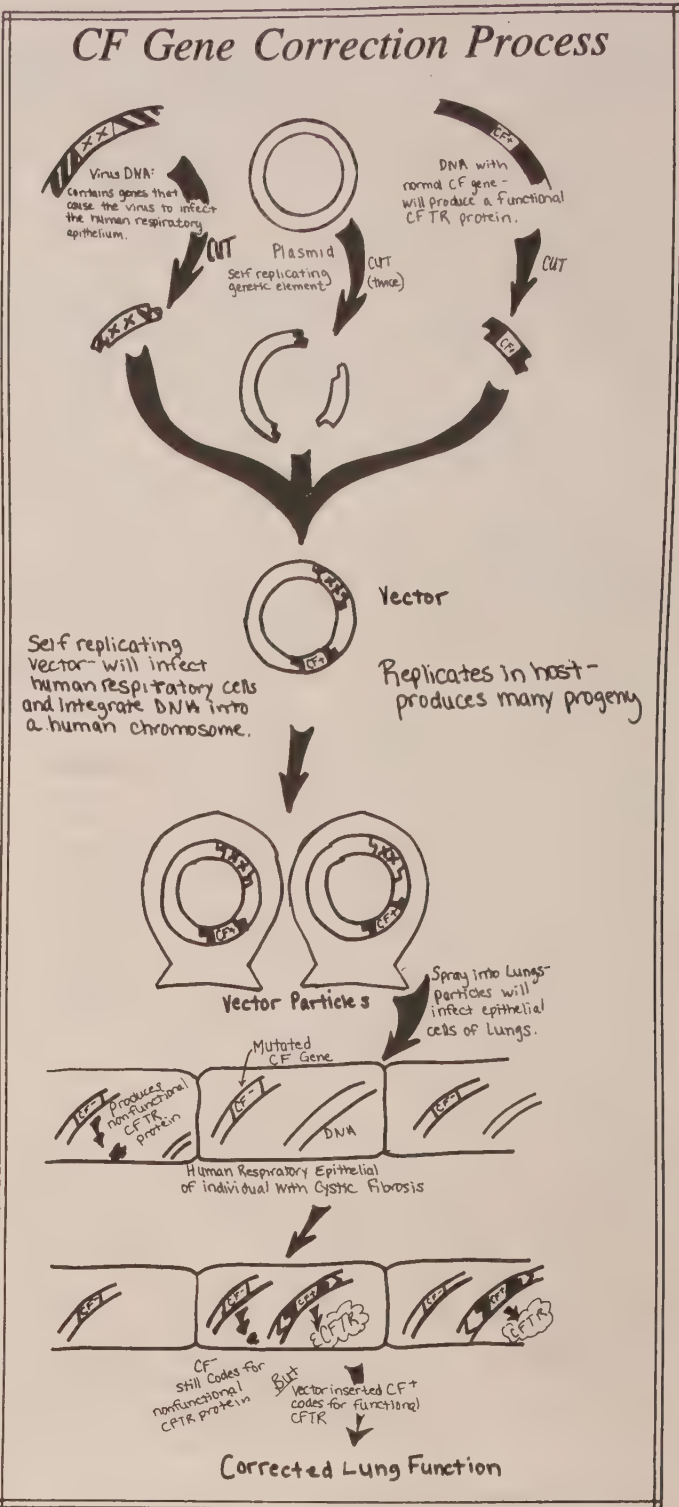 CF Gene Correction Process
XX
Virus DNA:
Contains genes that
cause the virus to infect
the human respiratory
epithelium.
CUT
Plasmid
Self replicating
genetic element
CUT
(twice)
CF+
DNA with
normal CF gene-
will produce a functional
CFTR protein.
CUT
XX
CF+
XX
CF+
Vector
Self replicating
vector- will infect
human respiratory cells
and integrate DNA into
a human chromosome.
Replicates in host-
produces many progeny
XX
CF+
XX
CF+
Vector Particles
Spray into Lungs-
Particles will
infect epithelial
cells of Lungs.
Mutated
CF Gene
CF-
Produces
nonfunctional
CFTR
protein
CF-
DNA
CF-
Human Respiratory Epithelial
of individual with Cystic Fibrosis
CF-
CF-
CF+
CFTR
CF-
CF+
CFTR
CF-
still codes for
nonfunctional
CFTR protein
But
Vector inserted CF+
codes for functional
CFTR
Corrected Lung Function